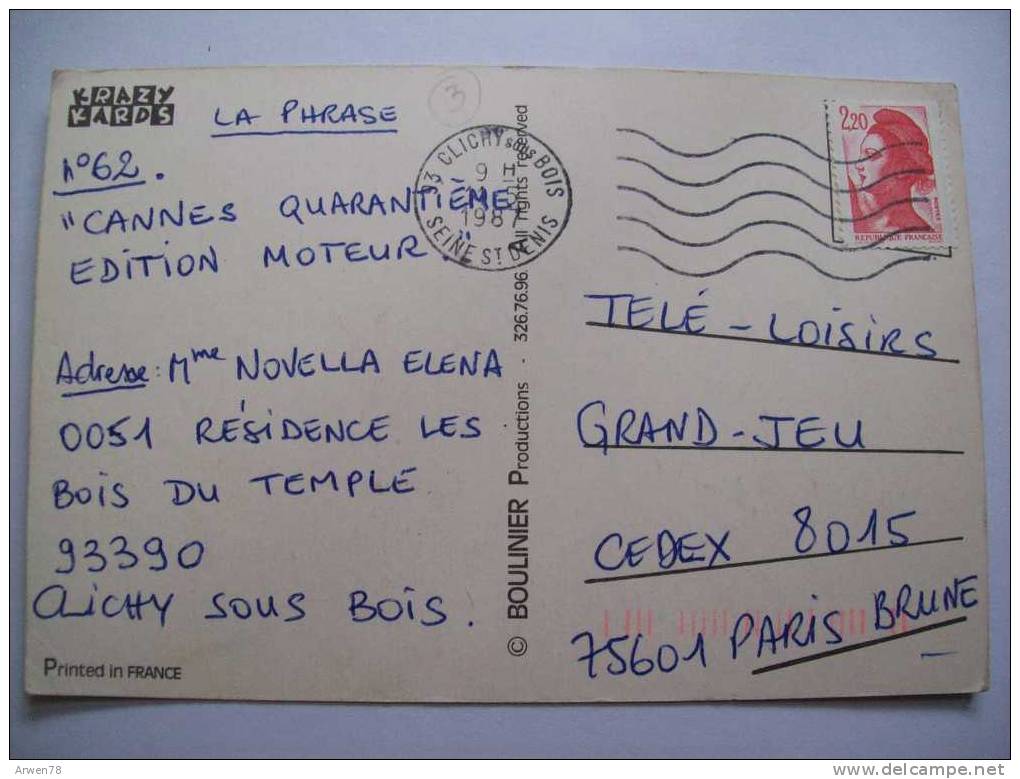 KRAZY
KARDS
LA PHRASE
3
n°62.
"CANNES QUARANTIÈME
EDITION MOTEUR."
Adresse: Mme NOVELLA ELENA
0051 RÉSIDENCE LES
BOIS DU TEMPLE
93390
CLICHY SOUS BOIS.
Printed in FRANCE
93 CLICHY sous BOIS
9 H
1987
SEINE ST DENIS
© BOULINIER Productions - 326.76.96. All rights reserved
2,20
REPUBLIQUE FRANÇAISE
TELÉ-LOISIRS
GRAND-JEU
CEDEX 8015
75601 PARIS BRUNE
Arwen78
http://www.delcampe.net